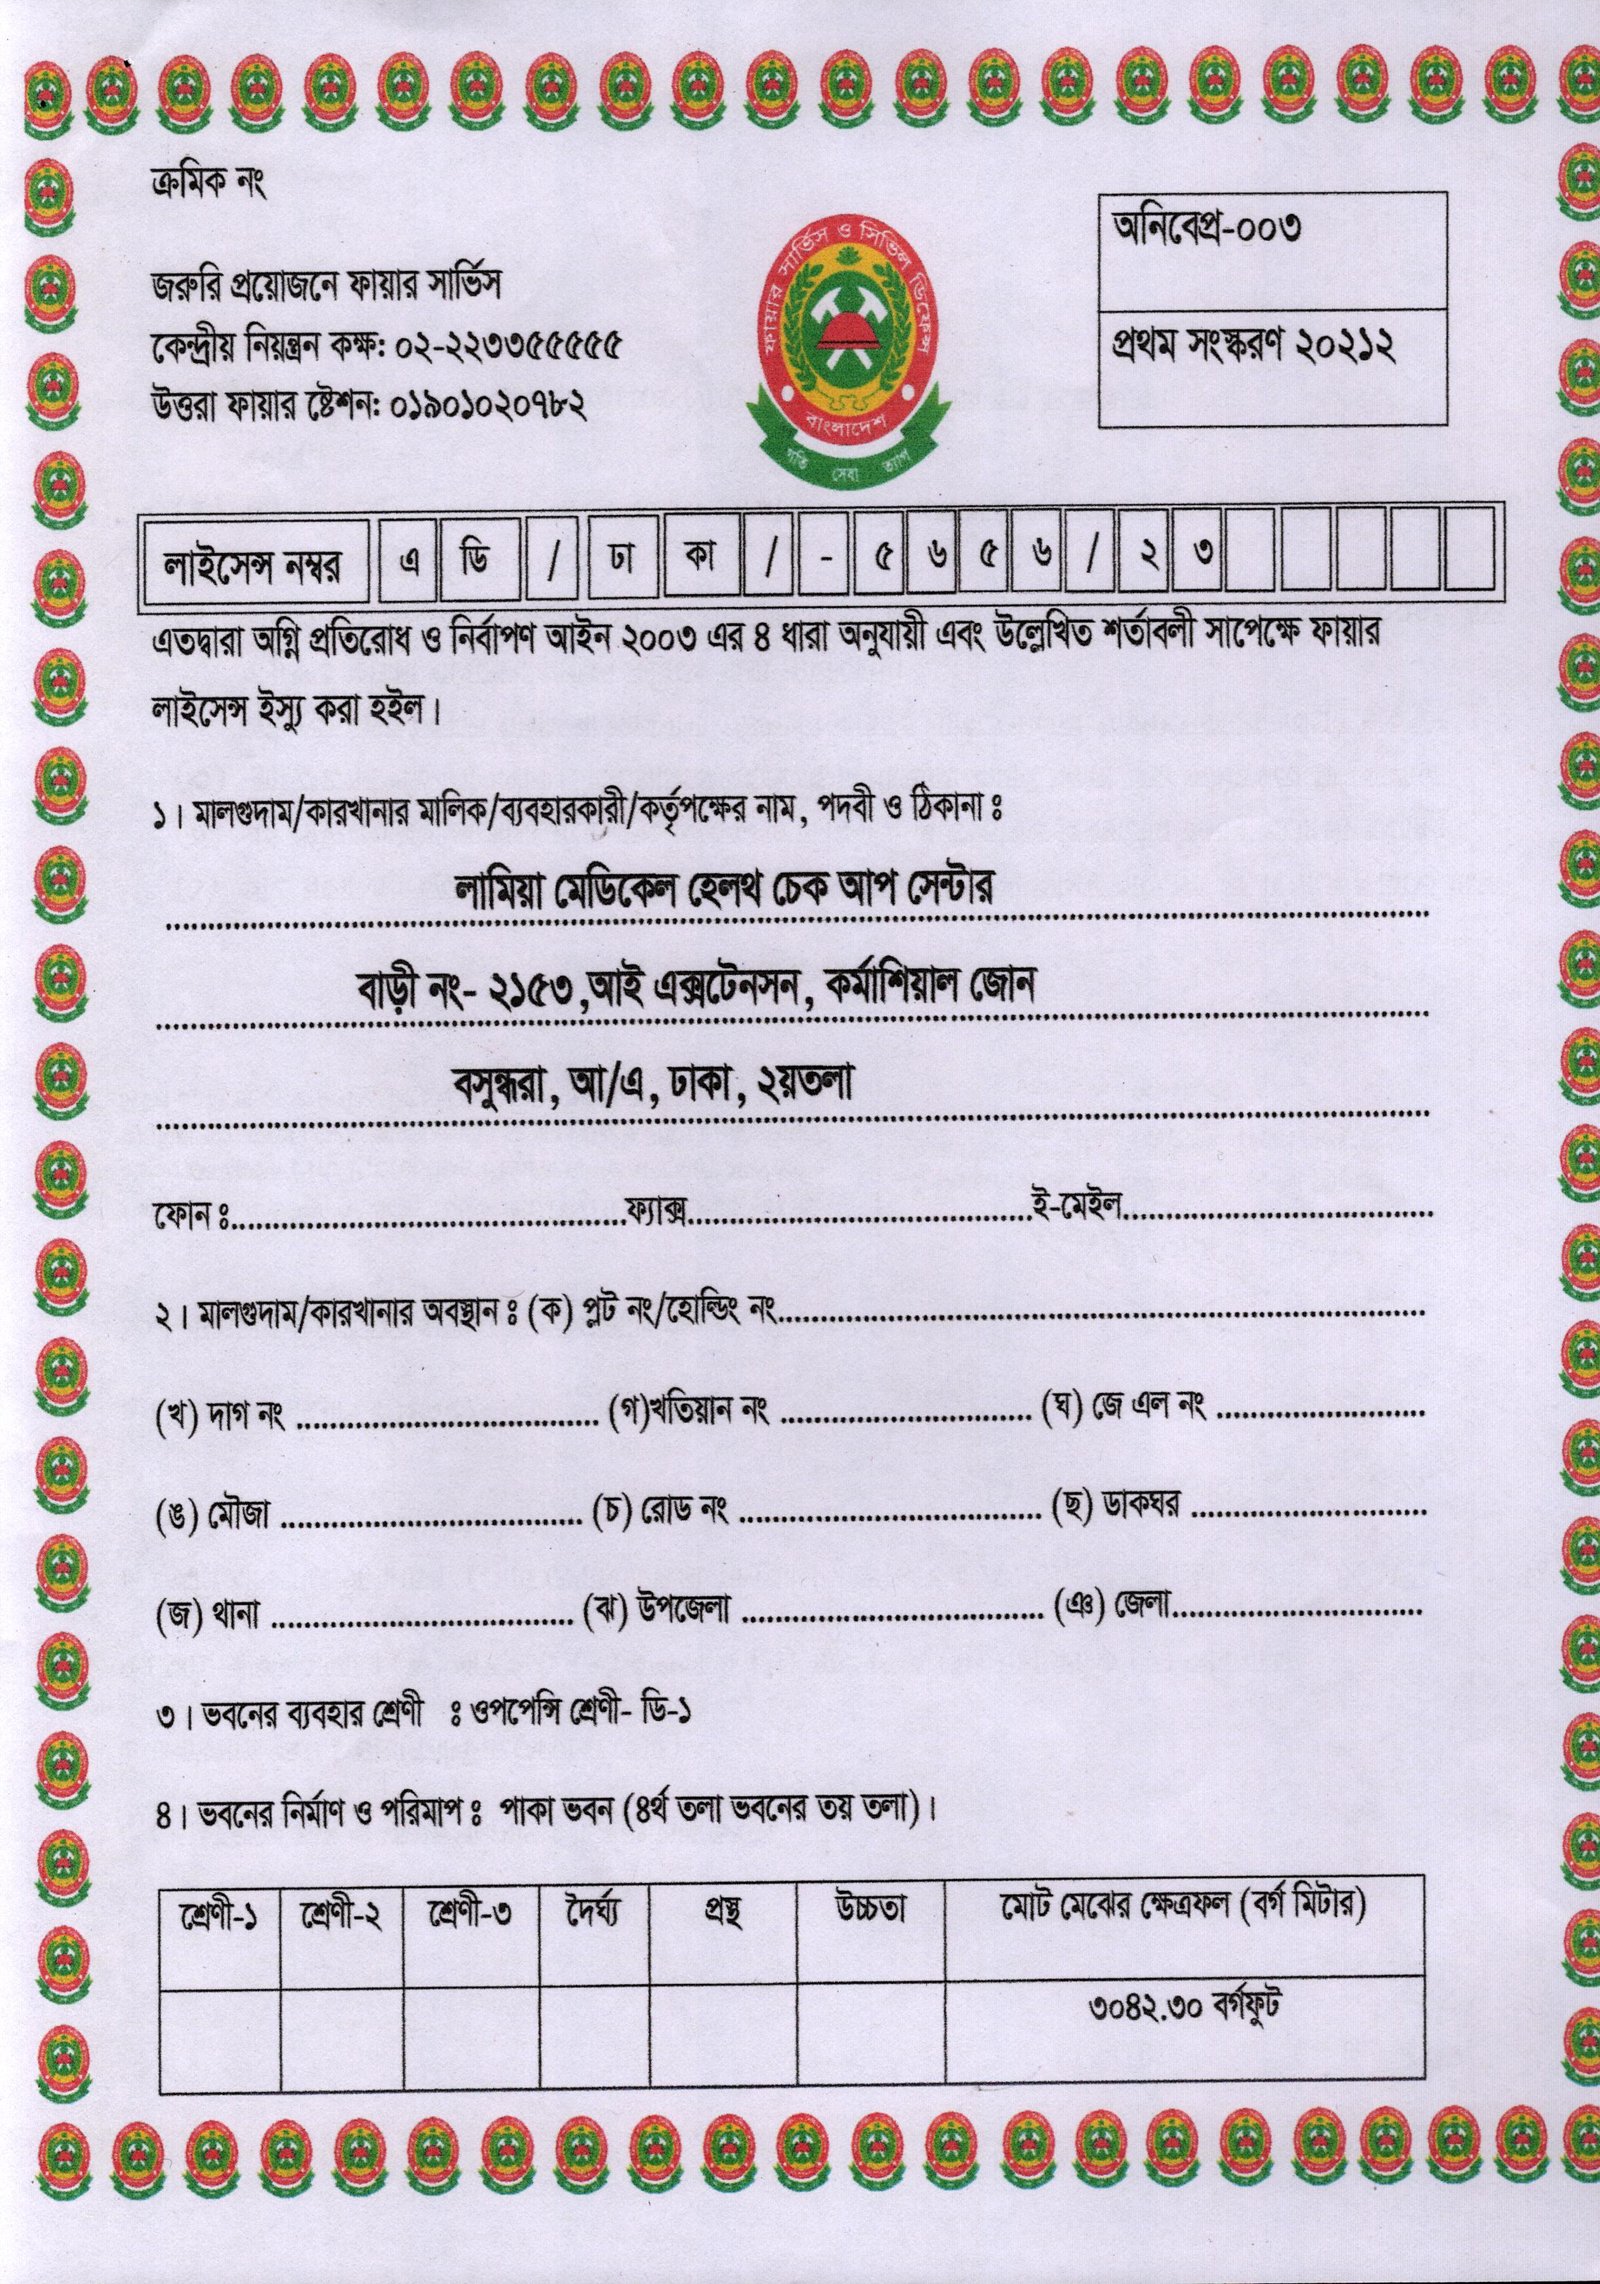 ক্রমিক নং
জরুরি প্রয়োজনে ফায়ার সার্ভিস
কেন্দ্রীয় নিয়ন্ত্রন কক্ষ: ০২-২২৩৩৫৫৫৫৫
উত্তরা ফায়ার ষ্টেশন: ০১৯০১০২০৭৮২
ফায়ার সার্ভিস ও সিভিল ডিফেন্স
বাংলাদেশ
গতি সেবা ত্যাগ
অনিবেপ্র-০০৩
প্রথম সংস্করণ ২০২১২
লাইসেন্স নম্বর এ ডি / ঢা কা / - ৫ ৬ ৫ ৬ / ২ ৩
এতদ্বারা অগ্নি প্রতিরোধ ও নির্বাপণ আইন ২০০৩ এর ৪ ধারা অনুযায়ী এবং উল্লেখিত শর্তাবলী সাপেক্ষে ফায়ার
লাইসেন্স ইস্যু করা হইল।
১। মালগুদাম/কারখানার মালিক/ব্যবহারকারী/কর্তৃপক্ষের নাম, পদবী ও ঠিকানা ঃ
লামিয়া মেডিকেল হেলথ চেক আপ সেন্টার
বাড়ী নং- ২১৫৩,আই এক্সটেনসন, কর্মাশিয়াল জোন
বসুন্ধরা, আ/এ, ঢাকা, ২য়তলা
ফোন ঃ............................................ফ্যাক্স.......................................ই-মেইল...................................
২। মালগুদাম/কারখানার অবস্থান ঃ (ক) প্লট নং/হোল্ডিং নং.........................................................................
(খ) দাগ নং .................................. (গ)খতিয়ান নং ............................ (ঘ) জে এল নং .......................
(ঙ) মৌজা .................................. (চ) রোড নং .................................. (ছ) ডাকঘর ..........................
(জ) থানা .................................. (ঝ) উপজেলা .................................. (ঞ) জেলা............................
৩। ভবনের ব্যবহার শ্রেণী ঃ ওপপেন্সি শ্রেণী- ডি-১
৪। ভবনের নির্মাণ ও পরিমাপ ঃ পাকা ভবন (৪র্থ তলা ভবনের তয় তলা)।
শ্রেণী-১ শ্রেণী-২ শ্রেণী-৩ দৈর্ঘ্য প্রস্থ উচ্চতা মোট মেঝের ক্ষেত্রফল (বর্গ মিটার)
৩০৪২.৩০ বর্গফুট